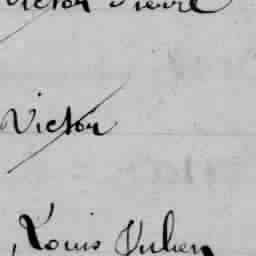 Victor Pierre
Victor
Louis Julien